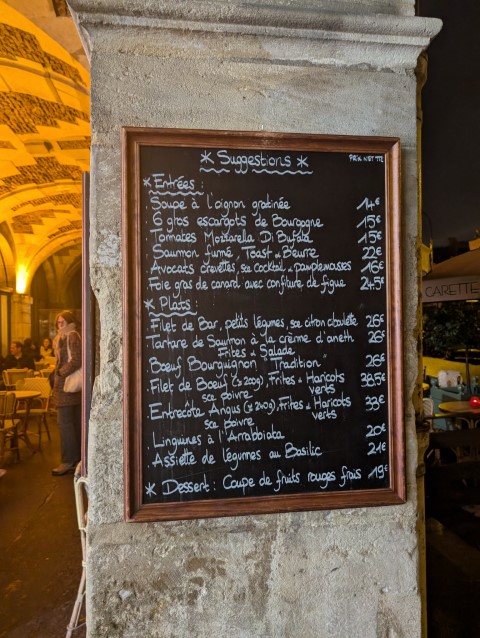 * Suggestions *
PRIX NET TTC
* Entrées :
. Soupe à l'oignon gratinée 14€
. 6 gros escargots de Bourgogne 15€
. Tomates Mozzarella Di Bufala 15€
. Saumon fumé, Toast & Beurre 22€
. Avocats crevettes, sce cocktail & pamplemousses 16€
. Foie gras de canard avec confiture de figue 24,5€
* Plats :
. Filet de Bar, petits légumes, sce citron ciboulette 26€
. Tartare de Saumon à la crème d'aneth 26€
Frites & Salade
. Boeuf Bourguignon "Tradition" 26€
. Filet de Boeuf (± 200g), Frites & Haricots verts 38,5€
sce poivre
. Entrecôte Angus (± 240g), Frites & Haricots verts 33€
sce poivre
. Linguines à l'Arrabbiata 20€
. Assiette de légumes au Basilic 21€
* Dessert : Coupe de fruits rouges frais 19€
CARETTE